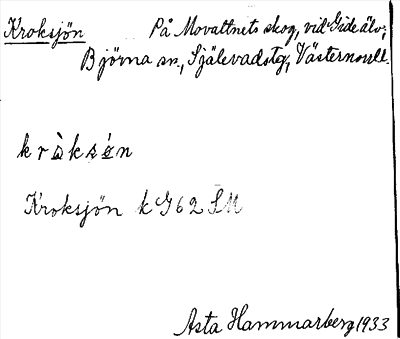 Kroksjön På Movattnets skog, vid Gideälv,
Björna sn., Själevads tg, Västernorrl.
kròksǿn
Kroksjön kG62 SM
Asta Hammarberg 1933